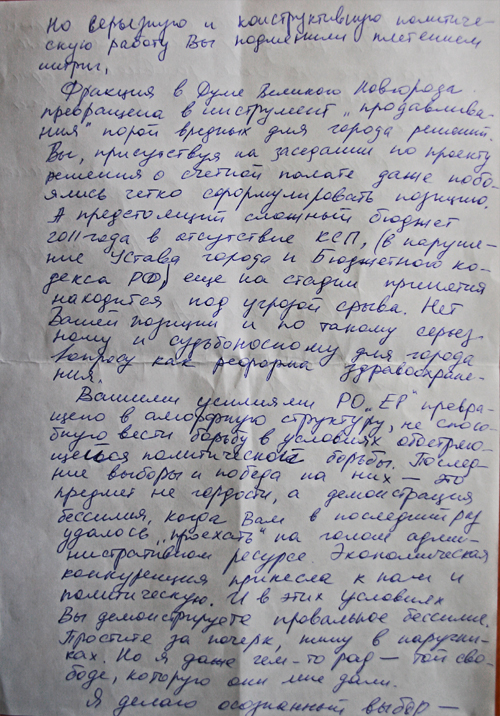 но серьезную и конструктивную политиче-
скую работу Вы подменили плетением
интриг.
Фракция в Думе Великого Новгорода
превращена в инструмент „продавлива-
ния" порой вредных для города решений.
Вы, присутствуя на заседании по проекту
решения о счетной палате даже побо-
ялись четко сформулировать позицию.
А предстоящий сложный бюджет
2011 года в отсутствие КСП, (в наруше-
ние Устава города и Бюджетного ко-
декса РФ) еще на стадии принятия
находится под угрозой срыва. Нет
Вашей позиции и по такому серьез
ному и судьбоносному для города
вопросу как реформа здравоохране-
ния.
Вашими усилиями РО „ЕР" превра-
щено в аморфную структуру, не спосо-
бную вести борьбу в условиях обостряю-
щейся политической борьбы. Послед-
ние выборы и победа на них — это
предмет не гордости, а демонстрация
бессилия, когда Вам в последний раз
удалось „проехать" на голом адми-
нистративном ресурсе. Экономическая
конкуренция принесла к нам и
политическую. И в этих условиях
Вы демонстрируете провальное бессилие.
Простите за почерк, пишу в наручни-
ках. Но я даже чем-то рад — той сво-
боде, которую они мне дали.
Я делаю осознанный выбор —